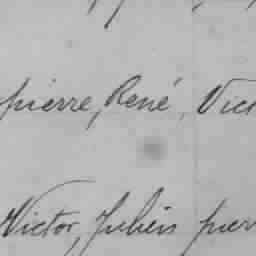 pierre, René, Vict
Victor, Julien pierr